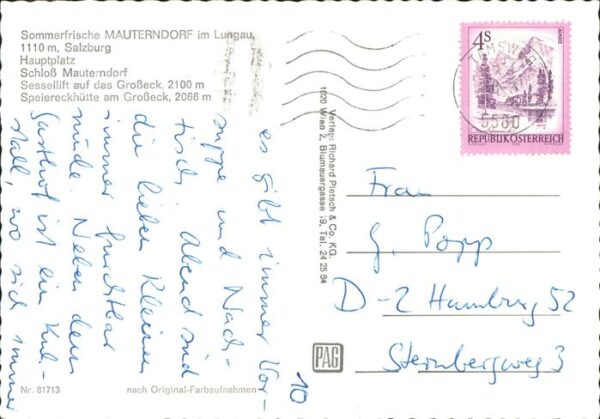 Sommerfrische MAUTERNDORF im Lungau,
1110 m, Salzburg
Hauptplatz
Schloß Mauterndorf
Sessellift auf das Großeck, 2100 m
Speiereckhütte am Großeck, 2066 m
es gibt immer Vor-
suppe und Nach-
tisch. Abend sind
die lieben Kleinen
immer furchtbar
müde. Neben dem
Gasthof ist ein Kuh-
stall, wo sich immer
Nr. 81713
nach Original-Farbaufnahmen
10
Verlag: Richard Pietsch & Co. KG.
1020 Wien 2, Blumauergasse 19, Tel. 24 25 84
PAG
4S
REPUBLIK ÖSTERREICH
TAMSWEG
5580
Frau
G. Popp
D-2 Hamburg 52
Sternbergweg 3